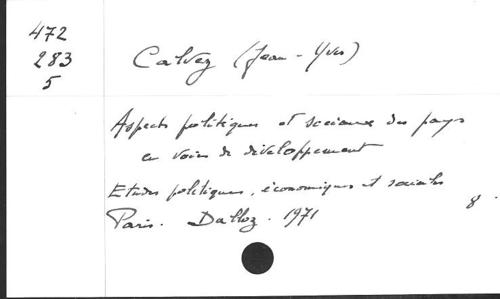 472
283
5
Calvez (Jean-Yves)
Aspects politiques et sociaux des pays
en voies de développement
Etudes politiques, économiques et sociales
8.
Paris. Dalloz. 1971